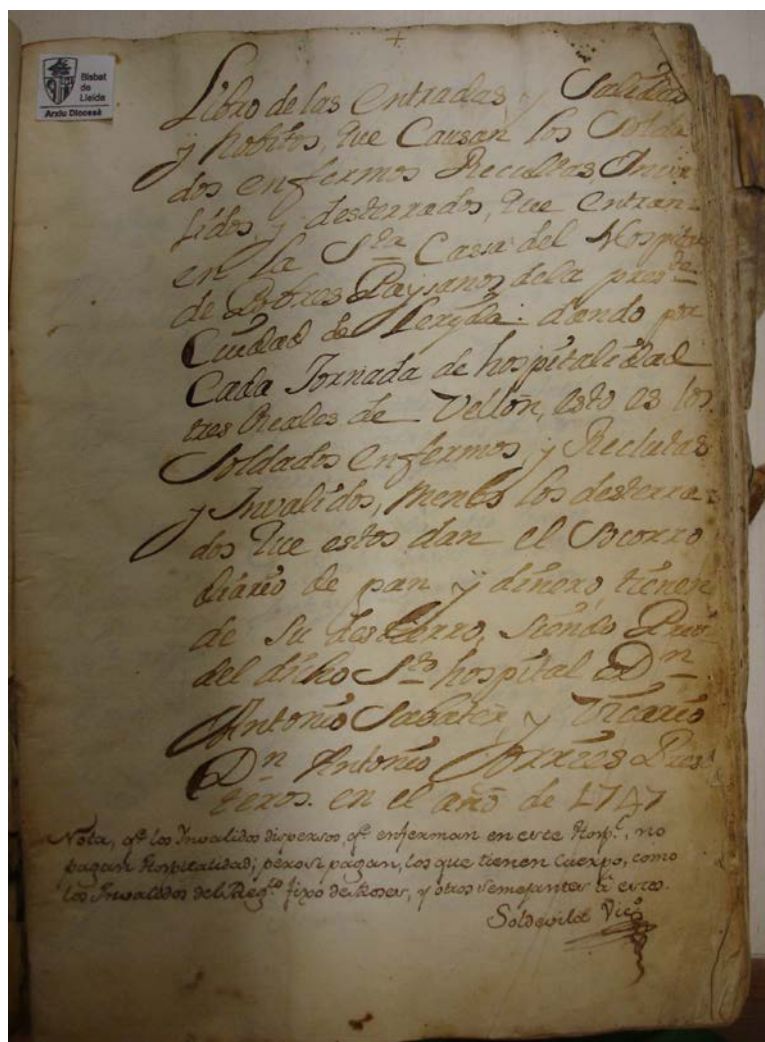 +
Bisbat
de
Lleida
Arxiu Diocesà
Libro de las Entradas, y Salidas
y hobitos, que Causan los Solda
dos enfermos Recultas Inva
lidos, y desterrados, que entran
en la Sta Casa del Hospital
de Pobres Paysanos dela presta
Ciudad de Leryda: dando por
Cada Jornada de hospitalidad
tres Reales de Vellón, esto es los
Soldados enfermos, y Reclutas
y Invalidos, menos los desterra-
dos que estos dan el Socorro
diario de pan y dinero, tienen
de Su destierro, siendo Prior
del dicho Sto hospital Dn
Antonio Sabater, y Vicario
Dn Antonio Torres Pres
teros. en el año de 1747
Nota, qe los Invalidos dispersos, qe enferman en este Hospl, no
pagan Hospitalidad; pero si pagan, los que tienen Cuerpo, como
los Invalidos del Regto fixo de Rosas, y otros semejantes á estos.
Soldevila Vico